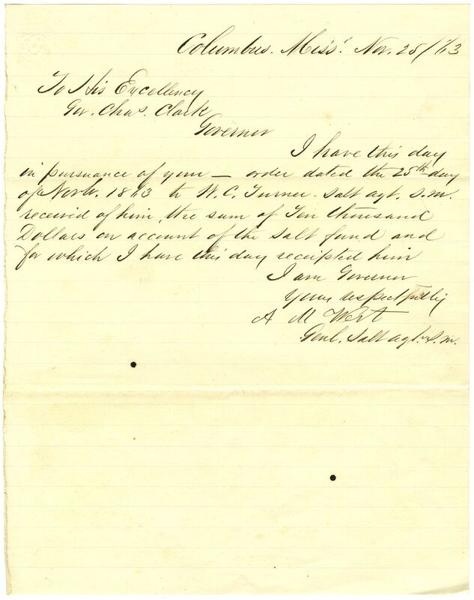 Columbus. Miss. Nov. 25/63
To His Excellency
Gov. Chas. Clark
Governor
I have this day
in pursuance of your — order dated the 25th day
of Novb. 1863 to W. C. Turner Salt agt. S. M.
received of him, the sum of Ten thousand
Dollars on account of the Salt fund and
for which I have this day receipted him
I am Governor
Yours respectfully
A M West
Genl. Salt agt. S. M.